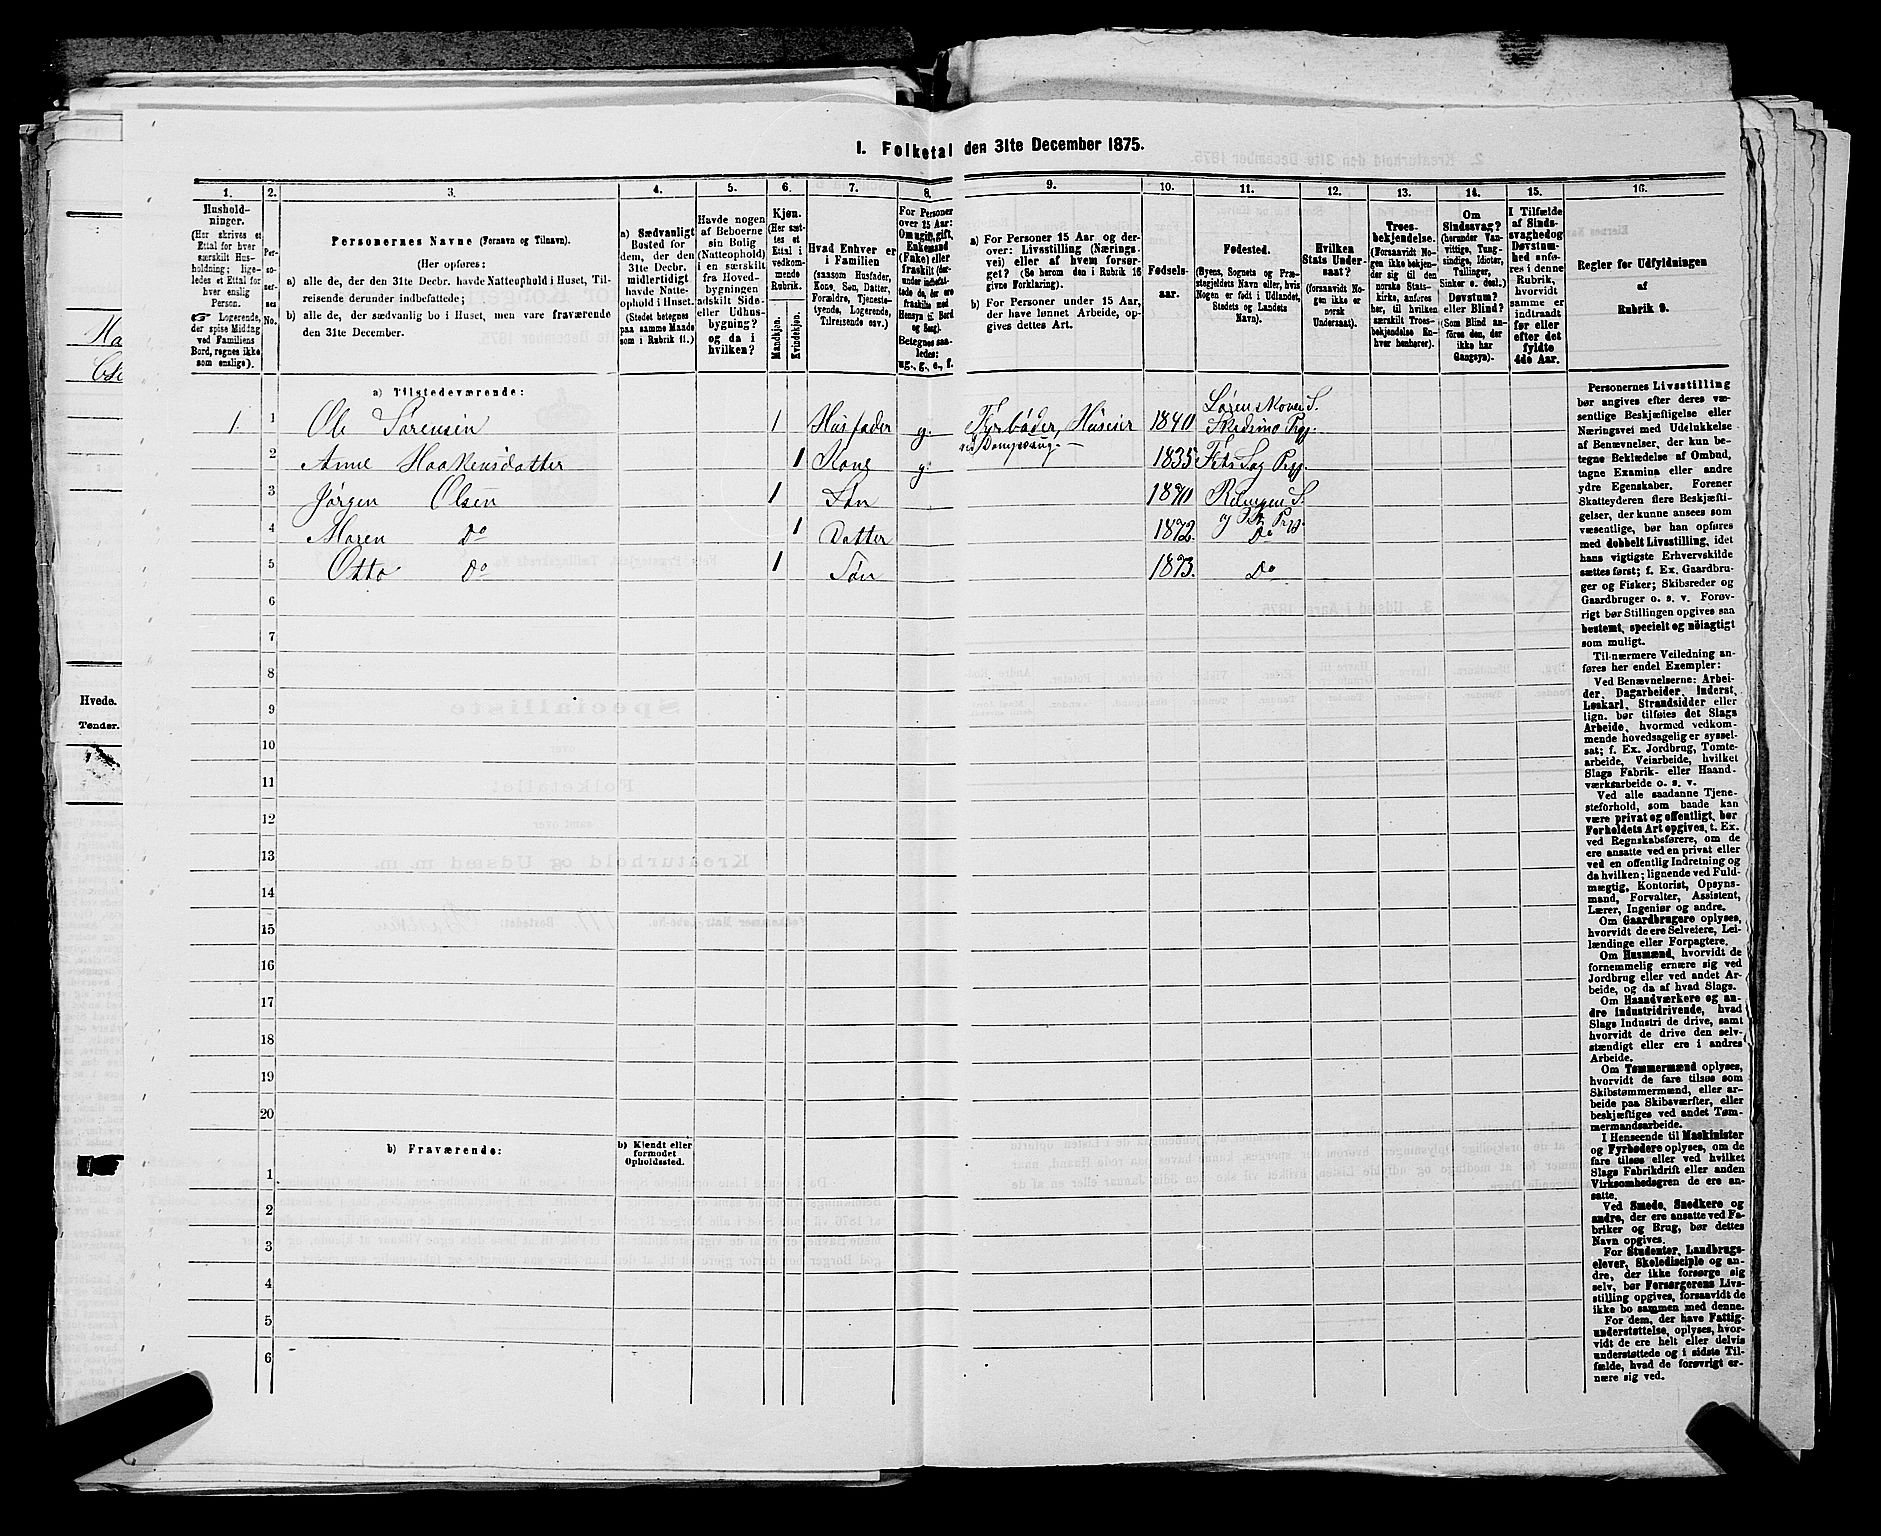 1. Folketal den 31te December 1875.
1. 2. 3. 4. 5. 6. 7. 8. 9. 10. 11. 12. 13. 14. 15. 16.
Hushold-
ninger.
(Her skrives et
Ettal for hver
særskilt Hus-
holdning; lige-
ledes et Ettal
for hver
enslig
Person.
☞ Logerende,
der spise Middag
ved Familiens
Bord, regnes ikke
som enslige).
Per-
so-
ner-
nes
No.
Personernes Navne (Fornavn og Tilnavn).
(Her opføres:
a) alle de, der den 31te Decbr. havde Natteophold i Huset, Til-
reisende derunder indbefattede;
b) alle de, der sædvanlig bo i Huset, men vare fraværende
den 31te December.
a) Sædvanligt
Bosted for
dem, der den
31te Decbr.
midlertidigt
havde Natte-
ophold i Huset.
(Stedet betegnes
paa samme Maade
som i Rubrik 11.)
Havde nogen
af Beboerne
sin Bolig
(Natteophold)
i en særskilt
fra Hoved-
bygningen
adskilt Side-
eller Udhus-
bygning?
og da i
hvilken?
Kjøn.
(Her sæt-
tes et
Ettal i
vedkom-
mende
Rubrik.
Mandkjøn.
Kvindekjøn.
Hvad Enhver er
i Familien
(saasom Husfader,
Kone, Søn, Datter,
Forældre, Tjeneste-
tyende, Logerende,
Tilreisende osv.)
For Personer
over 15 Aar:
Om ugift, gift,
Enkemand
(Enke) eller
fraskilt (der-
under indbefat-
tede de, der ere
fraskilte med
Hensyn til Bord
og Seng).
Betegnes saa-
ledes:
ug., g., e., f.
a) For Personer 15 Aar og der-
over: Livsstilling (Nærings-
vei) eller af hvem forsør-
get? (Se herom den i Rubrik 16
givne Forklaring).
b) For Personer under 15 Aar,
der have lønnet Arbeide, op-
gives dettes Art.
Fødsels-
aar.
Fødested.
(Byens, Sognets og Præ-
stegjeldets Navn eller, hvis
Nogen er født i Udlandet,
Stedets og Landets
Navn).
Hvilken
Stats Under-
saat?
(forsaavidt No-
gen ikke er
norsk
Undersaat).
Troes-
bekjendelse.
(Forsaavidt No-
gen ikke bekjen-
der sig til den
norske Stats-
kirke, anføres
her, til hvilken
særskilt Troes-
bekjendelse En-
hver henhører).
Om
Sindssvag?
(herunder Van-
vittige, Tung-
sindige, Idioter,
Tullinger,
Sinker o. desl.)
Døvstum?
eller Blind?
(Som Blind an-
føres den, der
ikke har
Gangsyn).
I Tilfælde
af Sinds-
svaghed og
Døvstum-
hed anfø-
res i denne
Rubrik,
hvorvidt
samme er
indtraadt
før eller
efter det
fyldte
4de Aar.
Regler for Udfyldningen
af
Rubrik 9.
a) Tilstedeværende:
1. 1 Ole Sørensen 1 Husfader g. Fyrbøder, Huseier 1840 Lørenskoven S.
Skedsmo Prgj.
2 Anne Haakensdatter 1 Kone g. 1835 Fets Sog Prgj.
3 Jørgen Olsen 1 Søn 1870 Relingen S.
4 Maren Do 1 Datter 1872. Do
5 Otto Do 1 Søn 1873. Do
6
7
8
9
10
11
12
13
14
15
16
17
18
19
20
b) Fraværende:
b) Kjendt eller
formodet
Opholdssted.
1
2
3
4
5
6
Personernes Livsstilling
bør angives efter deres væ-
sentlige Beskjæftigelse eller
Næringsvei med Udelukkelse
af Benævnelser, der kun be-
tegne Beklædelse af Ombud,
tagne Examina eller andre
ydre Egenskaber. Forener
Skatteyderen flere Beskjæfti-
gelser, der kunne ansees som
væsentlige, bør han opføres
med dobbelt Livsstilling, idet
hans vigtigste Erhvervskilde
sættes først; f. Ex. Gaardbru-
ger og Fisker; Skibsreder og
Gaardbruger o. s. v. Forøv-
rigt bør Stillingen opgives saa
bestemt, specielt og nøiagtigt
som muligt.
Til nærmere Veiledning an-
føres her endel Exempler:
Ved Benævnelserne: Arbei-
der, Dagarbeider, Inderst,
Løskarl, Strandsidder eller
lign. bør tilføies det Slags
Arbeide, hvormed vedkom-
mende hovedsagelig er syssel-
sat; f. Ex. Jordbrug, Tomte-
arbeide, Veiarbeide, hvilket
Slags Fabrik- eller Haand-
værksarbeide o. s. v.
Ved alle saadanne Tjene-
steforhold, som baade kan
være privat og offentligt, bør
Forholdets Art opgives, t. Ex.
ved Regnskabsførere, om de
ere ansatte ved en privat eller
ved en offentlig Indretning og
da hvilken; lignende ved Fuld-
mægtig, Kontorist, Opsyns-
mand, Forvalter, Assistent,
Lærer, Ingeniør og andre.
Om Gaardbrugere oplyses,
hvorvidt de ere Selveiere, Lei-
lændinge eller Forpagtere.
Om Husmænd, hvorvidt de
fornemmelig ernære sig ved
Jordbrug eller ved andet Ar-
beide, og da af hvad Slags.
Om Haandværkere og an-
dre Industridrivende, hvad
Slags Industri de drive, samt
hvorvidt de drive den selv-
stændigt eller ere i andres
Arbeide.
Om Tømmermænd oplyses,
hvorvidt de fare tilsøs som
Skibstømmermænd, eller ar-
beide paa Skibsværfter, eller
beskjæftiges ved andet Tøm-
mermandsarbeide.
I Henseende til Maskinister
og Fyrbødere oplyses, om de
fare tilsøs eller ved hvilket
Slags Fabrikdrift eller anden
Virksomhedsgren de ere an-
satte.
Ved Smede, Snedkere og
andre, der ere ansatte ved Fa-
briker og Brug, bør dettes
Navn opgives.
For Studenter, Landbrugs-
elever, Skoledisciple og an-
dre, der ikke forsørge sig
selv, bør Forsørgerens Livs-
stilling opgives, forsaavidt de
ikke bo sammen med denne.
For dem, der have Fattig-
understøttelse, oplyses, hvor-
vidt de ere helt eller delvis
understøttede og i sidste Til-
fælde, hvad de forøvrigt er-
nære sig ved.
Hvede.
Tønder.